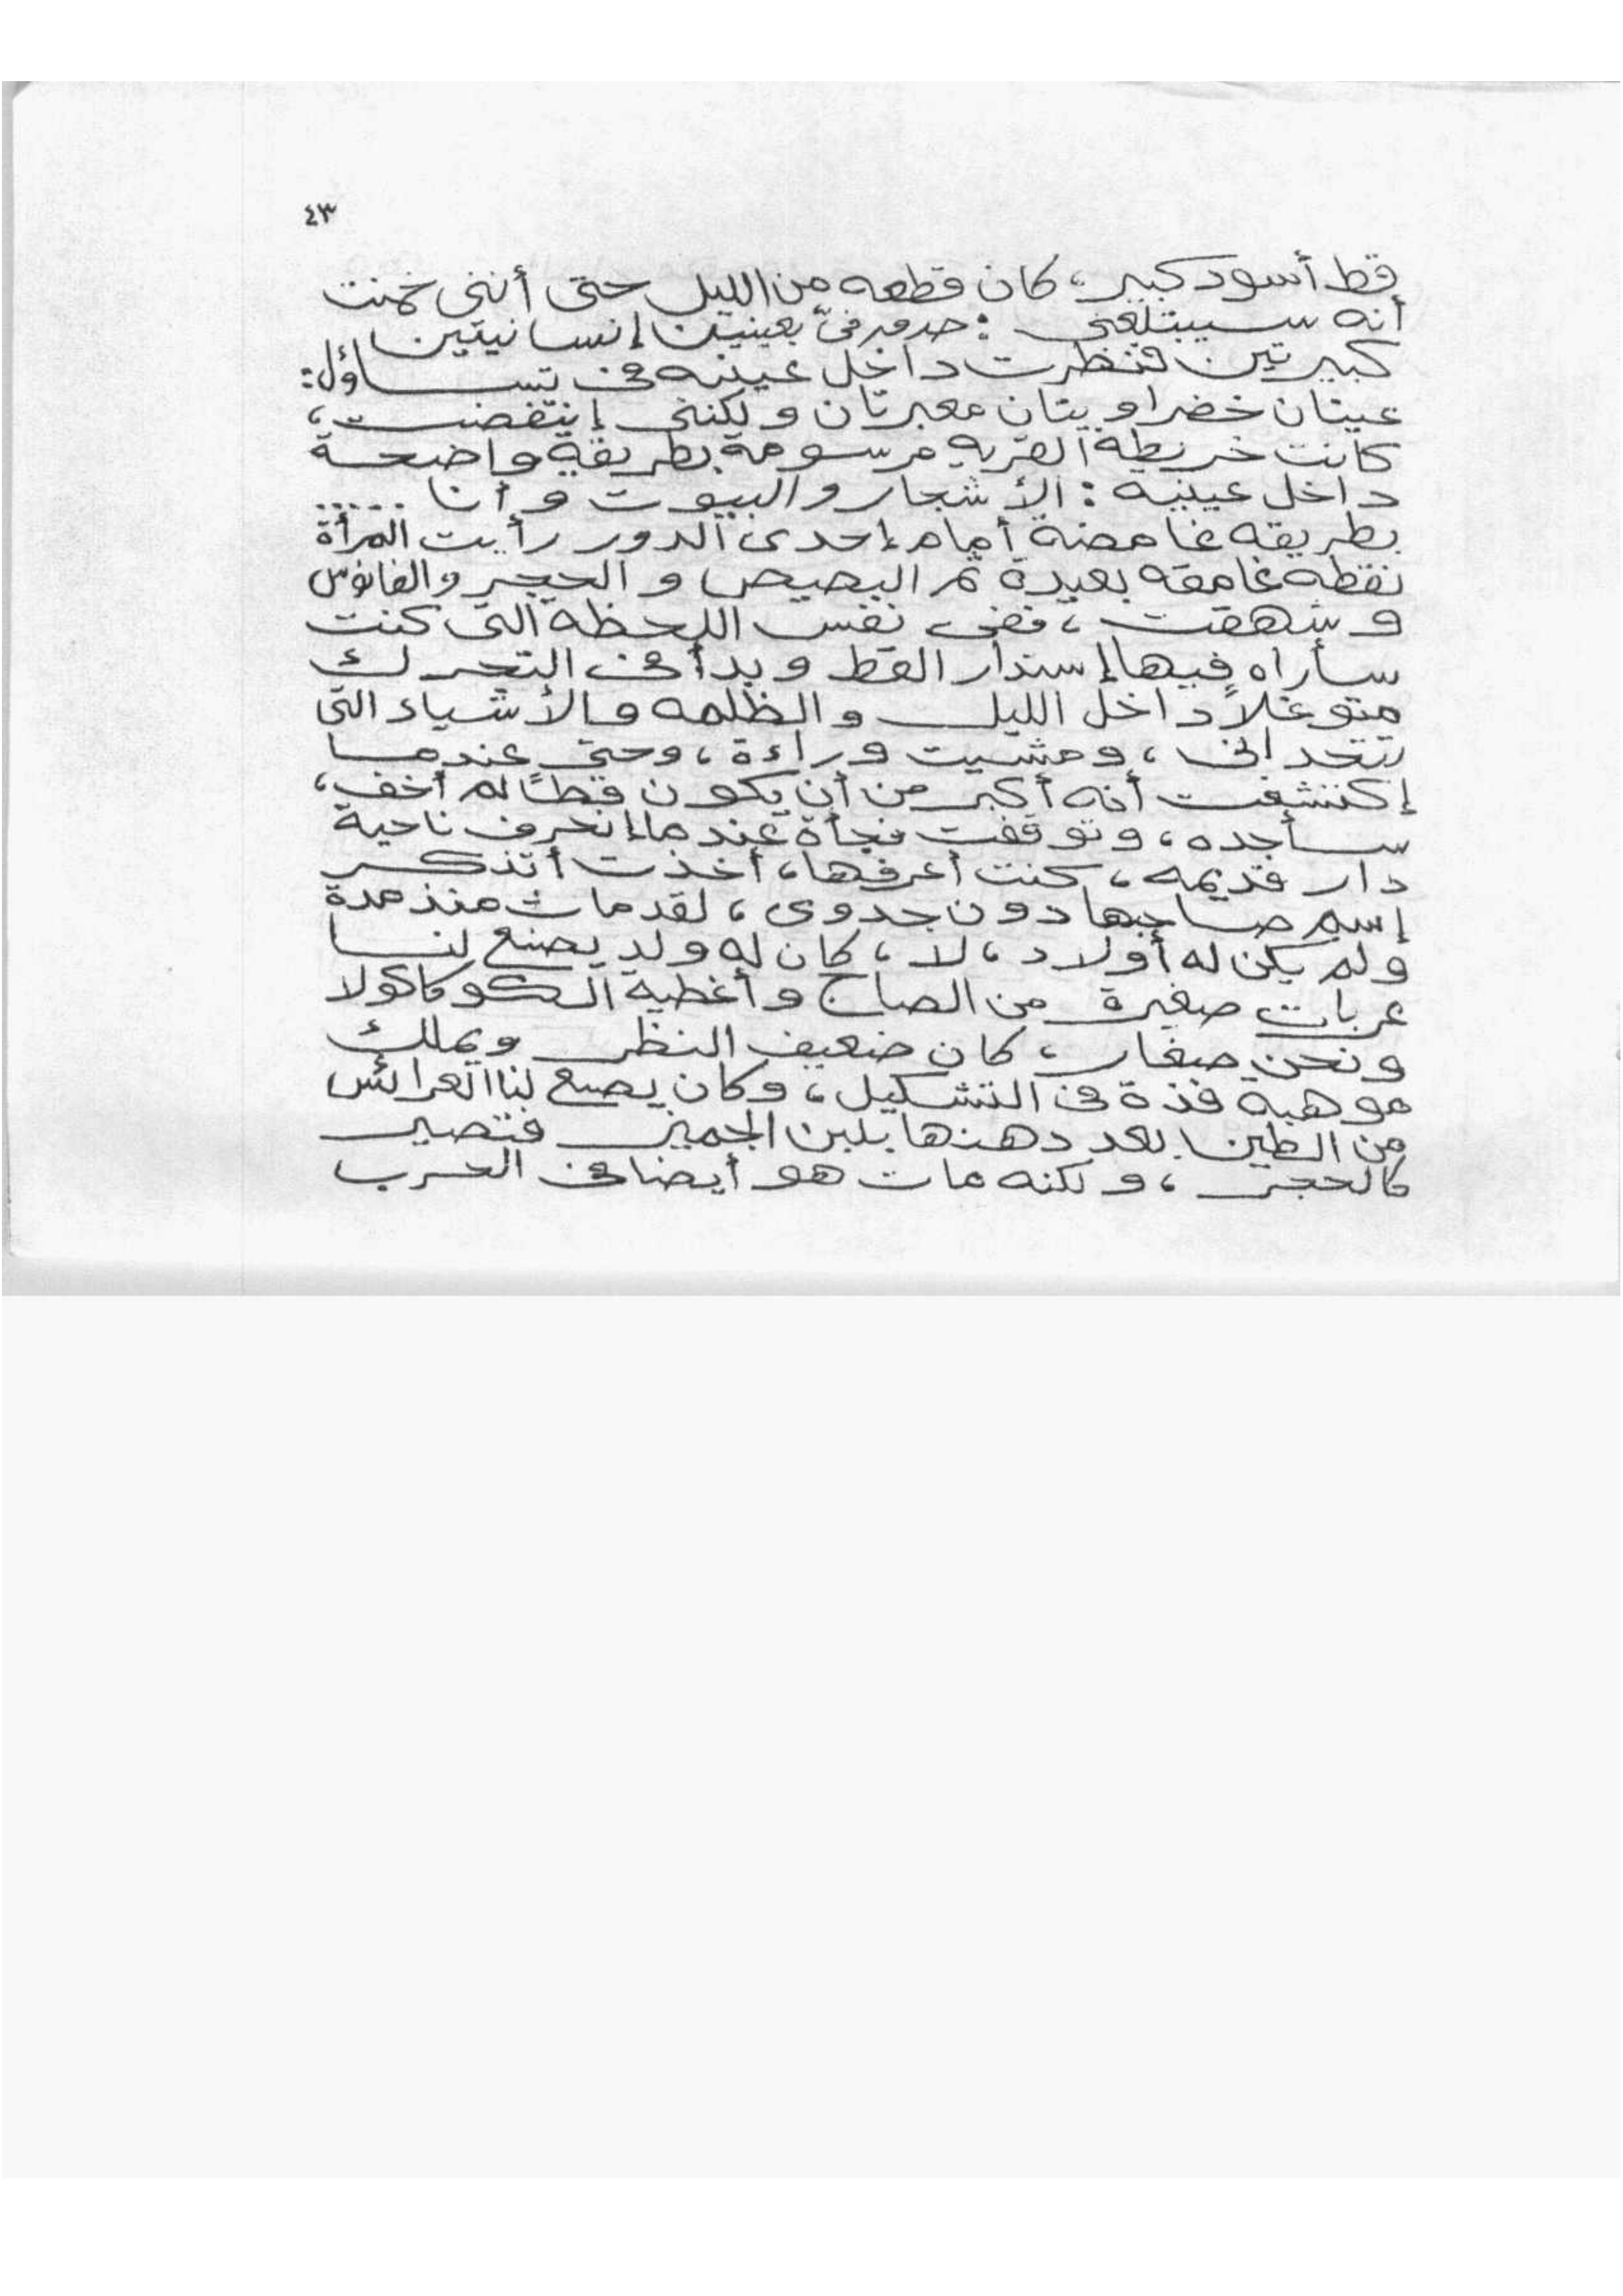 ٤٣
قط أسود كبير، كان قطعه من الليل حتى أننى خمنت
أنه سيبتلعنى : حدق فىّ بعينين إنسانيتين
كبيرتين فنظرت داخل عينيه فى تساؤل:
عينان خضراويتان معبرتان ولكننى إنتفضت،
كانت خريطه القريه مرسومة بطريقة واضحة
داخل عينيه : الأشجار والبيوت وأنا .....
بطريقه غامضة أمام إحدى الدور رأيت المرأة
نقطه غامقه بعيدة ثم البصيص والحجر والفانوس
وشهقت، ففى نفس اللحظه التى كنت
سأراه فيها إستدار القط وبدأ فى التحرك
متوغلاً داخل الليل والظلمه والأشياء التى
تتحدانى، ومشيت وراءة، وحتى عندما
إكتشفت أنه أكبر من أن يكون قطاً لم أخف،
سأجده، وتوقفت فجأة عندما إنحرف ناحية
دار قديمه، كنت أعرفها، أخذت أتذكر
إسم صاحبها دون جدوى، لقد مات منذ مدة
ولم يكن له أولاد، لا، كان له ولد يصنع لنا
عربات صغيرة من الصاج وأغطيه الكوكاكولا
ونحن صغار، كان ضعيف النظر ويملك
موهبه فذة فى التشكيل، وكان يصنع لنا العرائس
من الطين بعد دهنها بلبن الجميز فتصير
كالحجر، ولكنه مات هو أيضا فى الحرب